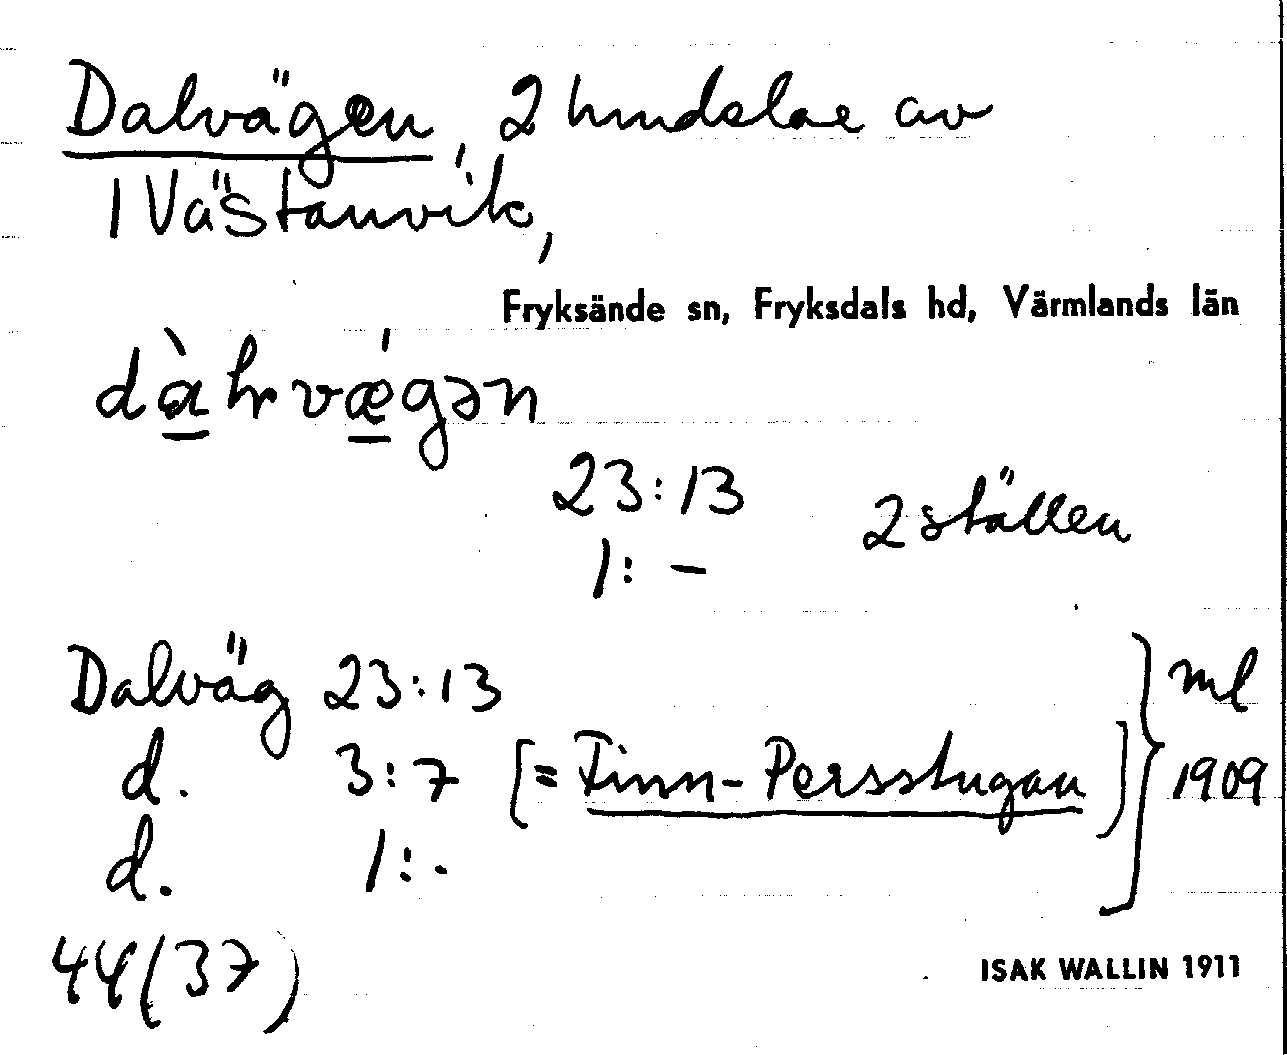 Dalvägen, 2 hmdslae av
1 Västanvik,
Fryksände sn, Fryksdals hd, Värmlands län
dàhrvǽgən
23:13 2 ställen
1: –
Dalväg 23:13
d. 3:7 [= Finn-Persstugan]
d. 1:-
} ml 1909
44(37)
ISAK WALLIN 1911